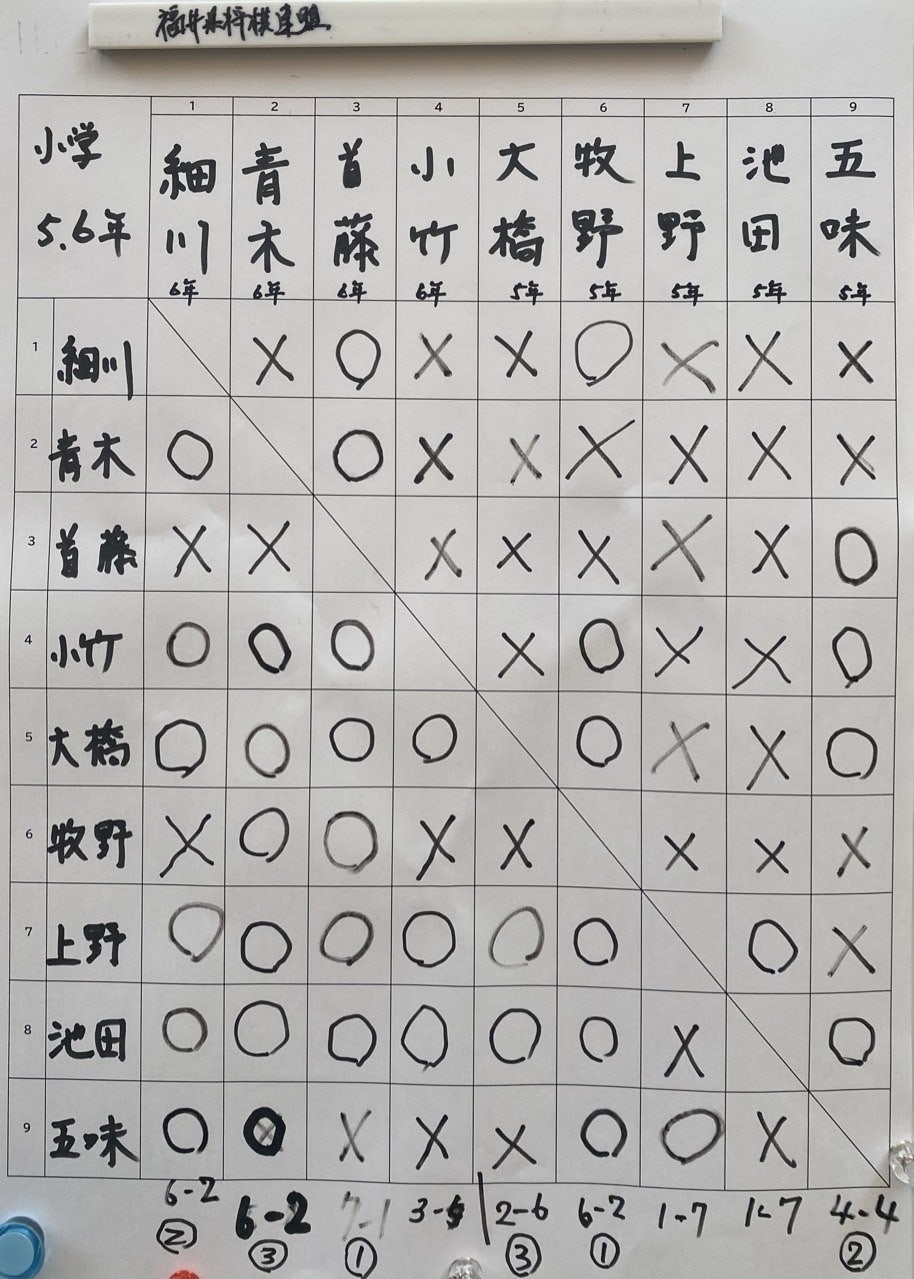 福井県将棋連盟
1 2 3 4 5 6 7 8 9
小学 5.6年 細川 青木 首藤 小竹 大橋 牧野 上野 池田 五味
6年 6年 6年 6年 5年 5年 5年 5年 5年
1 細川 X O X X O X X X
2 青木 O O X X X X X X
3 首藤 X X X X X X X O
4 小竹 O O O X O X X O
5 大橋 O O O O O X X O
6 牧野 X O O X X X X X
7 上野 O O O O O O O X
8 池田 O O O O O O X O
9 五味 O O X X X O O X
6-2 6-2 7-1 3-5 2-6 6-2 1-7 1-7 4-4
② ③ ① ③ ① ②